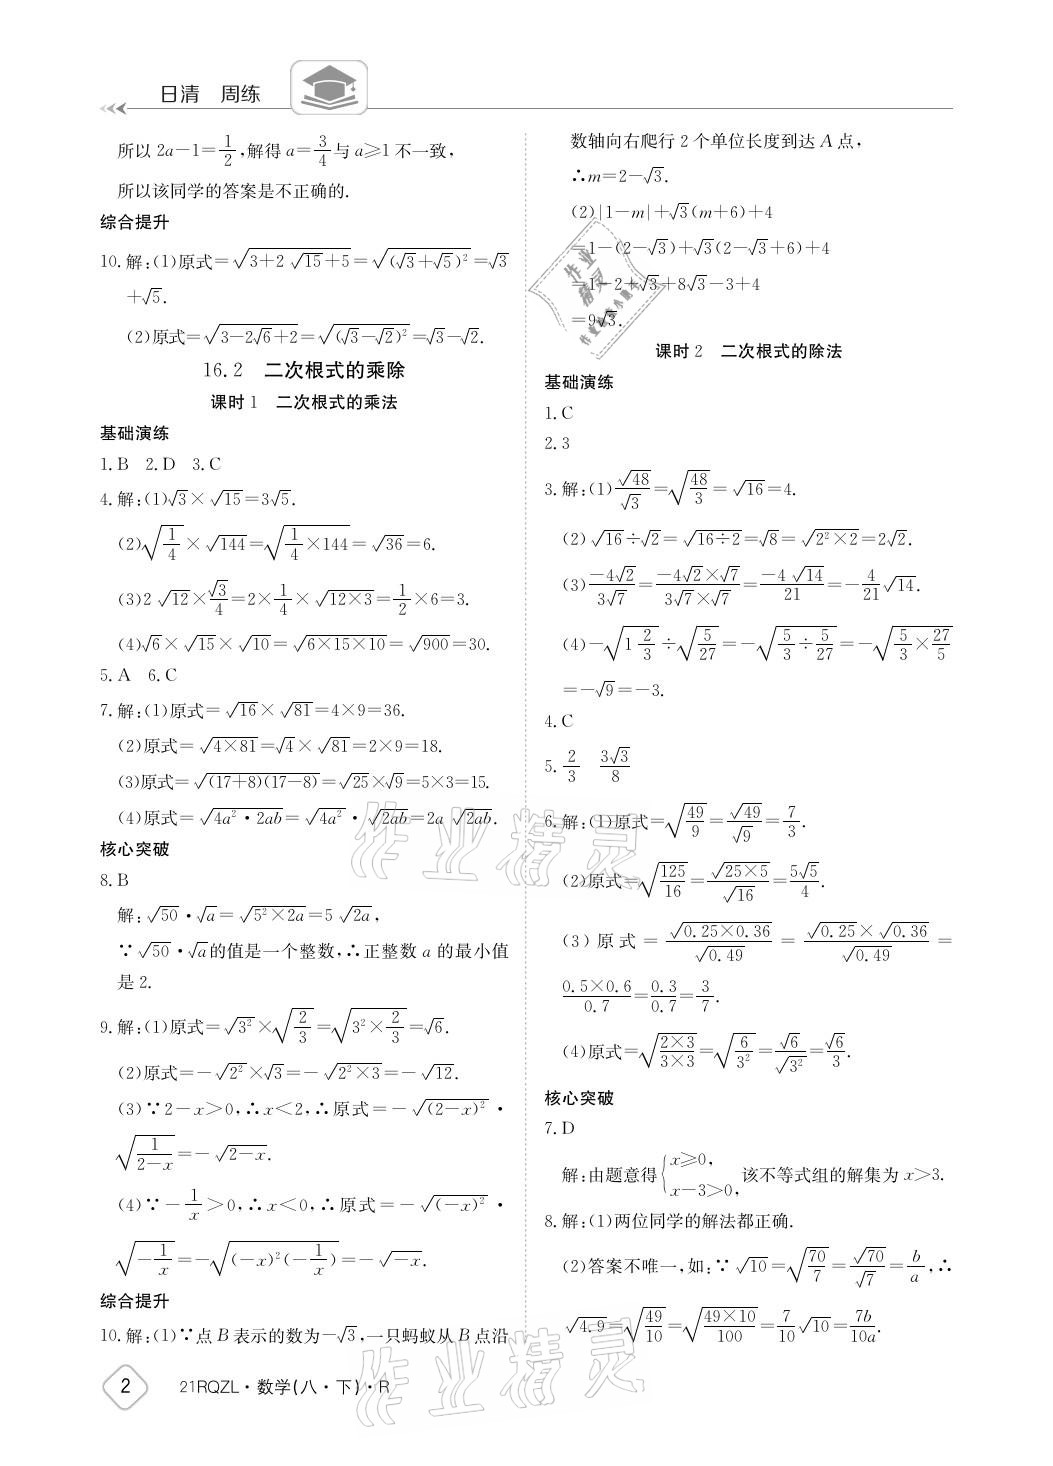 日清 周练
所以 2a-1=1/2,解得 a=3/4与 a≥1 不一致,
所以该同学的答案是不正确的.
综合提升
10. 解:(1)原式=√(3+2√15+5)=√((√3+√5)²)=√3
+√5.
(2)原式=√(3-2√6+2)=√((√3-√2)²)=√3-√2.
16.2 二次根式的乘除
课时 1 二次根式的乘法
基础演练
1. B 2. D 3. C
4. 解:(1)√3×√15=3√5.
(2)√(1/4)×√144=√(1/4×144)=√36=6.
(3)2√12×√3/4=2×1/4×√(12×3)=1/2×6=3.
(4)√6×√15×√10=√(6×15×10)=√900=30.
5. A 6. C
7. 解:(1)原式=√16×√81=4×9=36.
(2)原式=√(4×81)=√4×√81=2×9=18.
(3)原式=√((17+8)(17-8))=√25×√9=5×3=15.
(4)原式=√(4a²·2ab)=√(4a²)·√(2ab)=2a√(2ab).
核心突破
8. B
解:√50·√a=√(5²×2a)=5√(2a),
∵√50·√a的值是一个整数,∴正整数 a 的最小值
是 2.
9. 解:(1)原式=√(3²)×√(2/3)=√(3²×2/3)=√6.
(2)原式=-√(2²)×√3=-√(2²×3)=-√12.
(3)∵2-x>0,∴x<2,∴原式=-√((2-x)²)·
√(1/(2-x))=-√(2-x).
(4)∵-1/x>0,∴x<0,∴原式=-√((-x)²)·
√(-1/x)=-√((-x)²(-1/x))=-√(-x).
综合提升
10. 解:(1)∵点 B 表示的数为-√3,一只蚂蚁从 B 点沿
数轴向右爬行 2 个单位长度到达 A 点,
∴m=2-√3.
(2)|1-m|+√3(m+6)+4
=1-(2-√3)+√3(2-√3+6)+4
=1-2+√3+8√3-3+4
=9√3.
课时 2 二次根式的除法
基础演练
1. C
2. 3
3. 解:(1)√48/√3=√(48/3)=√16=4.
(2)√16÷√2=√(16÷2)=√8=√(2²×2)=2√2.
(3)-4√2/3√7=-4√2×√7/3√7×√7=-4√14/21=-4/21√14.
(4)-√(1 2/3)÷√(5/27)=-√(5/3÷5/27)=-√(5/3×27/5)
=-√9=-3.
4. C
5. 2/3 3√3/8
6. 解:(1)原式=√(49/9)=√49/√9=7/3.
(2)原式=√(125/16)=√(25×5)/√16=5√5/4.
(3)原式=√(0.25×0.36)/√0.49=√0.25×√0.36/√0.49=
0.5×0.6/0.7=0.3/0.7=3/7.
(4)原式=√(2×3/3×3)=√(6/3²)=√6/√(3²)=√6/3.
核心突破
7. D
解:由题意得{x≥0, x-3>0,该不等式组的解集为 x>3.
8. 解:(1)两位同学的解法都正确.
(2)答案不唯一,如:∵√10=√(70/7)=√70/√7=b/a,∴
√4.9=√(49/10)=√(49×10/100)=7/10√10=7b/10a.
2 21RQZL·数学(八·下)·R
作业精灵
作业精灵
作业精灵